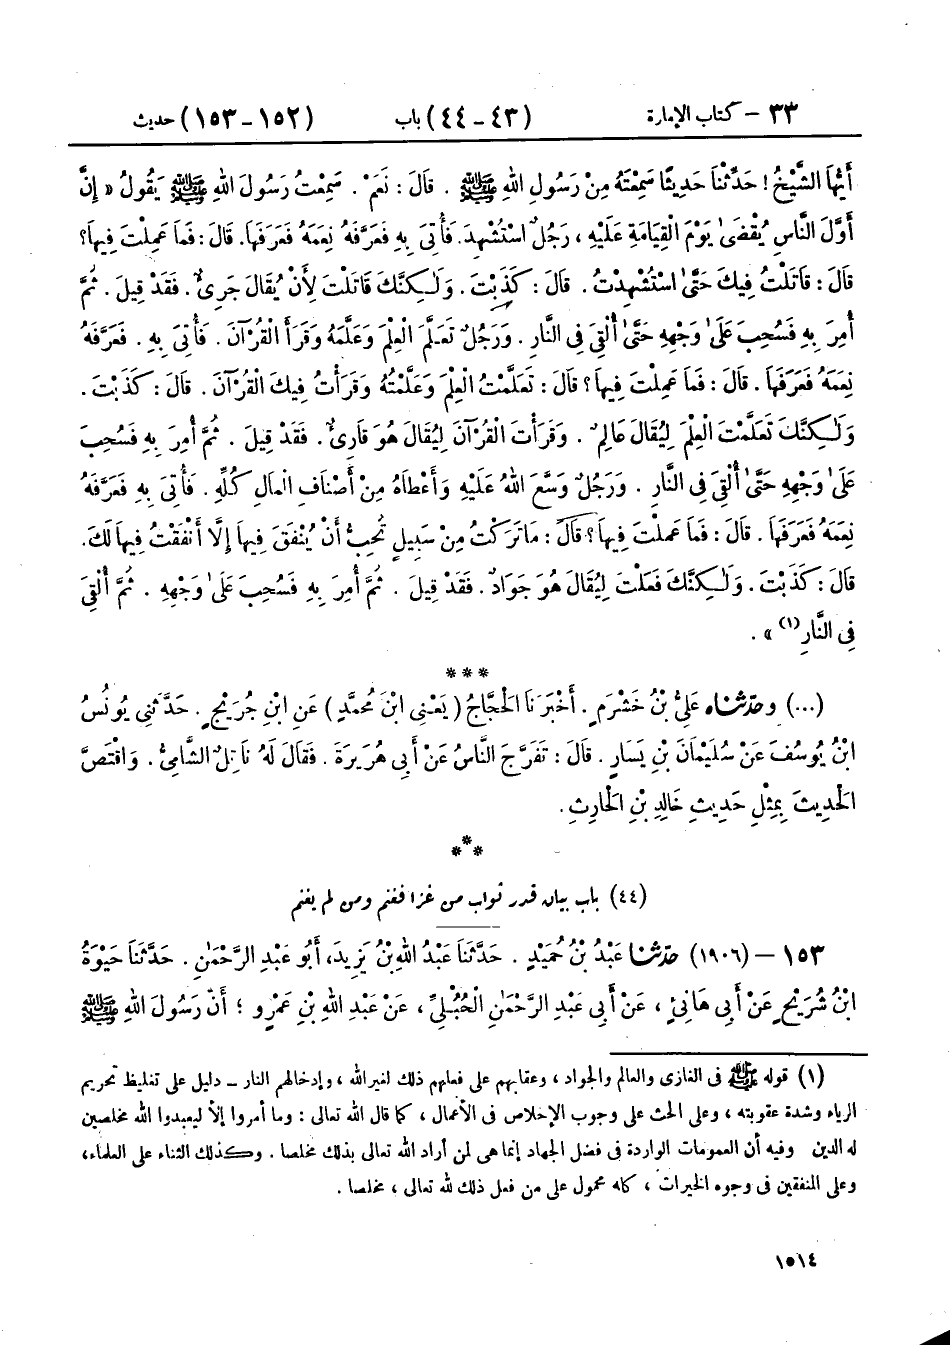 ٣٣ – كتاب الإمارة (٤٣ – ٤٤) باب (١٥٢ – ١٥٣) حديث
أَيُّهَا الشَّيْخُ ! حَدِّثْنَا حَدِيثًا سَمِعْتَهُ مِنْ رَسُولِ اللهِ ﷺ . قَالَ : نَعَمْ . سَمِعْتُ رَسُولَ اللهِ ﷺ يَقُولُ « إِنَّ
أَوَّلَ النَّاسِ يُقْضَىٰ يَوْمَ الْقِيَامَةِ عَلَيْهِ ، رَجُلٌ اسْتُشْهِدَ. فَأُتِىَ بِهِ فَعَرَّفَهُ نِعَمَهُ فَعَرَفَهَا. قَالَ : فَمَا عَمِلْتَ فِيهَا؟
قَالَ : قَاتَلْتُ فِيكَ حَتَّىٰ اسْتُشْهِدْتُ . قَالَ : كَذَبْتَ . وَلَـٰكِنَّكَ قَاتَلْتَ لِأَنْ يُقَالَ جَرِىءٌ . فَقَدْ قِيلَ . ثُمَّ
أُمِرَ بِهِ فَسُحِبَ عَلَىٰ وَجْهِهِ حَتَّىٰ أُلْقِىَ فِى النَّارِ . وَرَجُلٌ تَعَلَّمَ الْعِلْمَ وَعَلَّمَهُ وَقَرَأَ الْقُرْآنَ . فَأُتِىَ بِهِ . فَعَرَّفَهُ
نِعَمَهُ فَعَرَفَهَا . قَالَ : فَمَا عَمِلْتَ فِيهَا؟ قَالَ : تَعَلَّمْتُ الْعِلْمَ وَعَلَّمْتُهُ وَقَرَأْتُ فِيكَ الْقُرْآنَ . قَالَ : كَذَبْتَ .
وَلَـٰكِنَّكَ تَعَلَّمْتَ الْعِلْمَ لِيُقَالَ عَالِمٌ . وَقَرَأْتَ الْقُرْآنَ لِيُقَالَ هُوَ قَارِئٌ . فَقَدْ قِيلَ . ثُمَّ أُمِرَ بِهِ فَسُحِبَ
عَلَىٰ وَجْهِهِ حَتَّىٰ أُلْقِىَ فِى النَّارِ . وَرَجُلٌ وَسَّعَ اللهُ عَلَيْهِ وَأَعْطَاهُ مِنْ أَصْنَافِ الْمَالِ كُلِّهِ . فَأُتِىَ بِهِ فَعَرَّفَهُ
نِعَمَهُ فَعَرَفَهَا . قَالَ : فَمَا عَمِلْتَ فِيهَا؟ قَالَ : مَا تَرَكْتُ مِنْ سَبِيلٍ تُحِبُّ أَنْ يُنْفَقَ فِيهَا إِلَّا أَنْفَقْتُ فِيهَا لَكَ.
قَالَ : كَذَبْتَ . وَلَـٰكِنَّكَ فَعَلْتَ لِيُقَالَ هُوَ جَوَادٌ . فَقَدْ قِيلَ . ثُمَّ أُمِرَ بِهِ فَسُحِبَ عَلَىٰ وَجْهِهِ . ثُمَّ أُلْقِىَ
فِى النَّارِ (١) » .
* * *
(...) وحدّثناه عَلِىُّ بْنُ خَشْرَمٍ . أَخْبَرَنَا الْحَجَّاجُ ( يَعْنِى ابْنَ مُحَمَّدٍ ) عَنِ ابْنِ جُرَيْجٍ . حَدَّثَنِى يُونُسُ
ابْنُ يُوسُفَ عَنْ سُلَيْمَانَ بْنِ يَسَارٍ . قَالَ : تَفَرَّجَ النَّاسُ عَنْ أَبِى هُرَيْرَةَ . فَقَالَ لَهُ نَاتِلٌ الشَّامِىُّ . وَاقْتَصَّ
الْحَدِيثَ بِمِثْلِ حَدِيثِ خَالِدِ بْنِ الْحَارِثِ .
* * *
(٤٤) باب بيان قدر ثواب من غزا فغنم ومن لم يغنم
١٥٣ – (١٩٠٦) حدّثنا عَبْدُ بْنُ حُمَيْدٍ . حَدَّثَنَا عَبْدُ اللهِ بْنُ يَزِيدَ، أَبُو عَبْدِ الرَّحْمَٰنِ . حَدَّثَنَا حَيْوَةُ
ابْنُ شُرَيْحٍ عَنْ أَبِى هَانِئٍ ، عَنْ أَبِى عَبْدِ الرَّحْمَٰنِ الْحُبُلِيِّ ، عَنْ عَبْدِ اللهِ بْنِ عَمْرٍو ؛ أَنَّ رَسُولَ اللهِ ﷺ
(١) قوله ﷺ فى الغازى والعالم والجواد ، وعقابهم على فعلهم ذلك لغير الله ، وإدخالهم النار – دليل على تغليظ تحريم
الرياء وشدة عقوبته ، وعلى الحث على وجوب الإخلاص فى الأعمال ، كما قال الله تعالى : وما أمروا إلا ليعبدوا الله مخلصين
له الدين وفيه أن العمومات الواردة فى فضل الجهاد إنما هى لمن أراد الله تعالى بذلك مخلصا . وكذلك الثناء على العلماء،
وعلى المنفقين فى وجوه الخيرات ، كله محمول على من فعل ذلك لله تعالى ، مخلصا .
١٥١٤